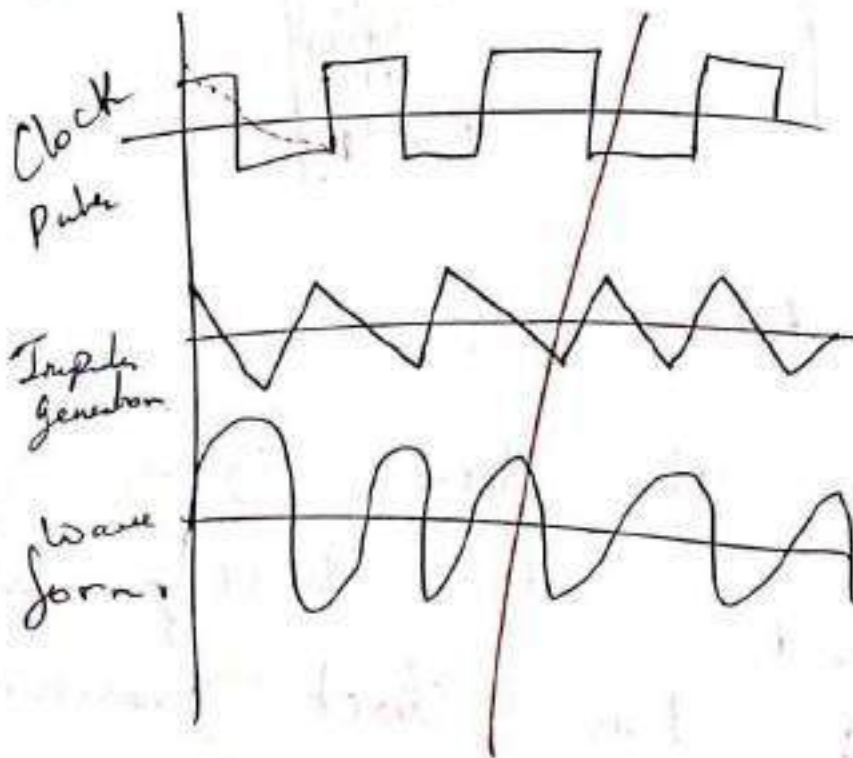 Clock
Pulse
Impulse
generation
Wave
forms